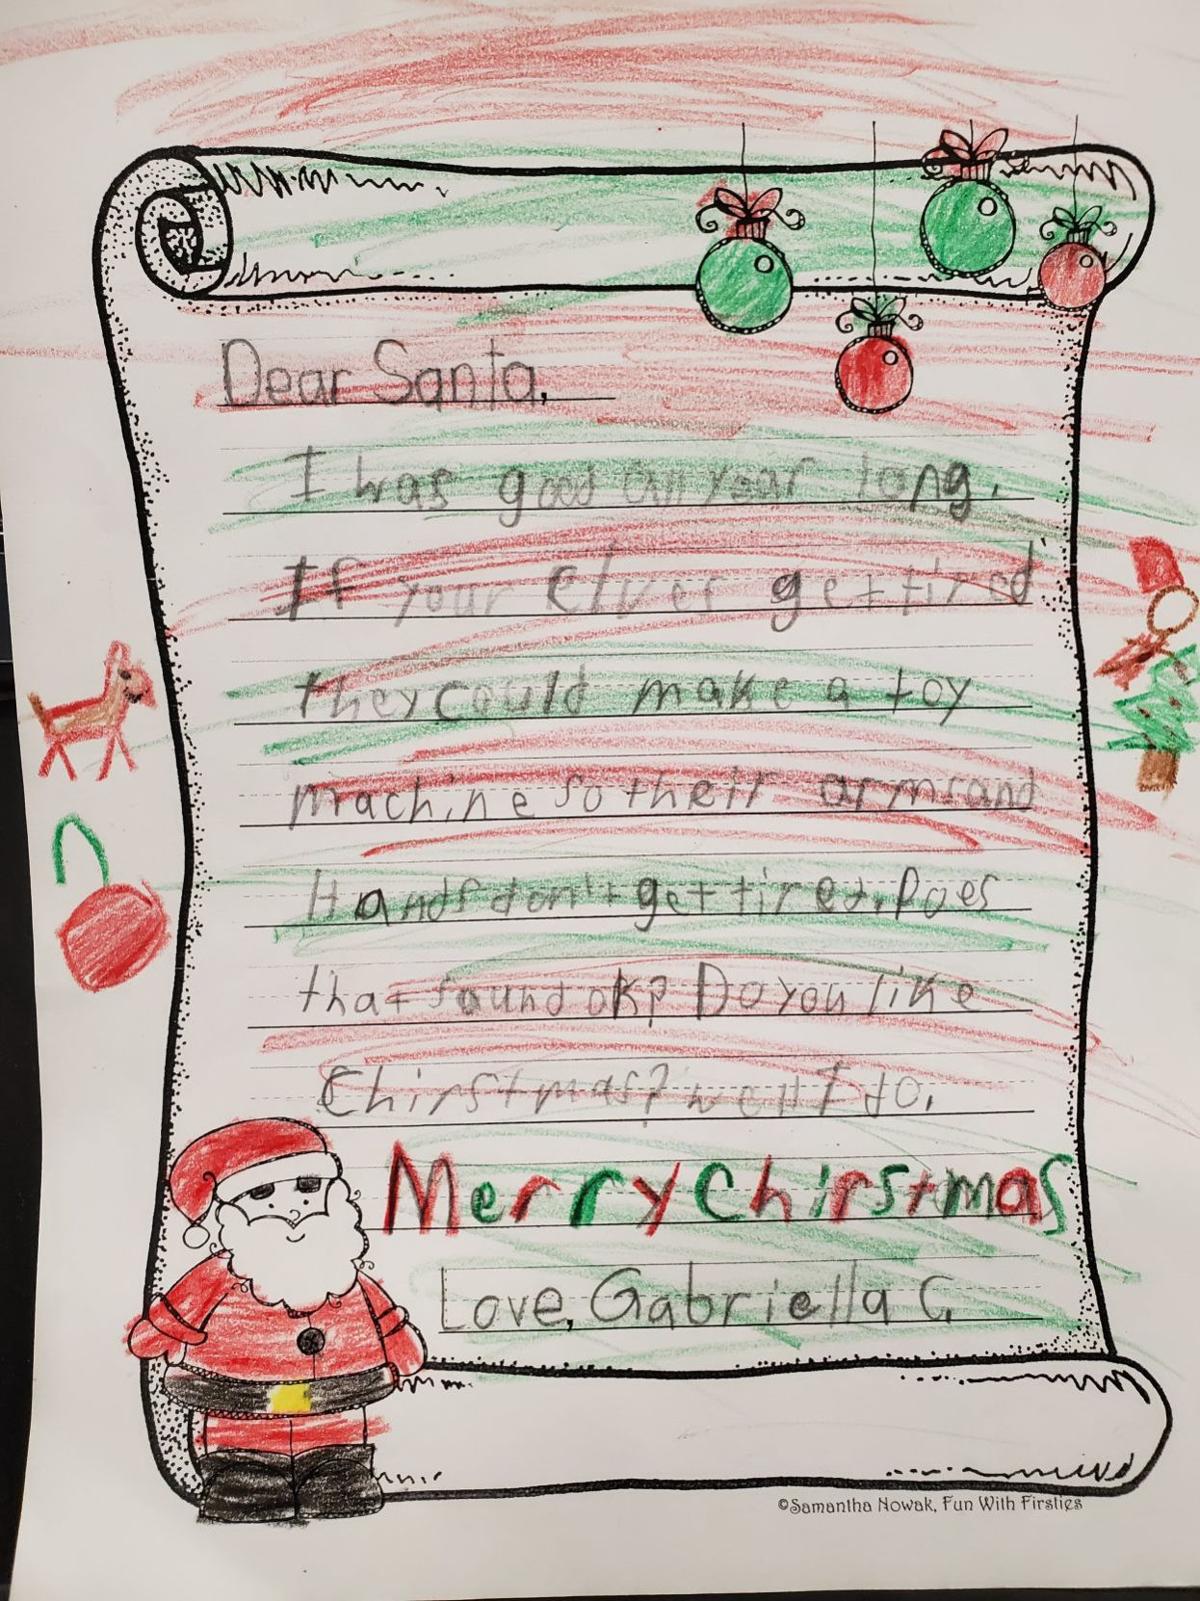 Dear Santa,
I was good all year long.
If your elves get tired
they could make a toy
machine so their arms and
Hands don't get tired. Does
that sound ok? Do you like
Chirstmas? well I do.
Merry Chirstmas
Love, Gabriella C.
©Samantha Nowak, Fun With Firsties